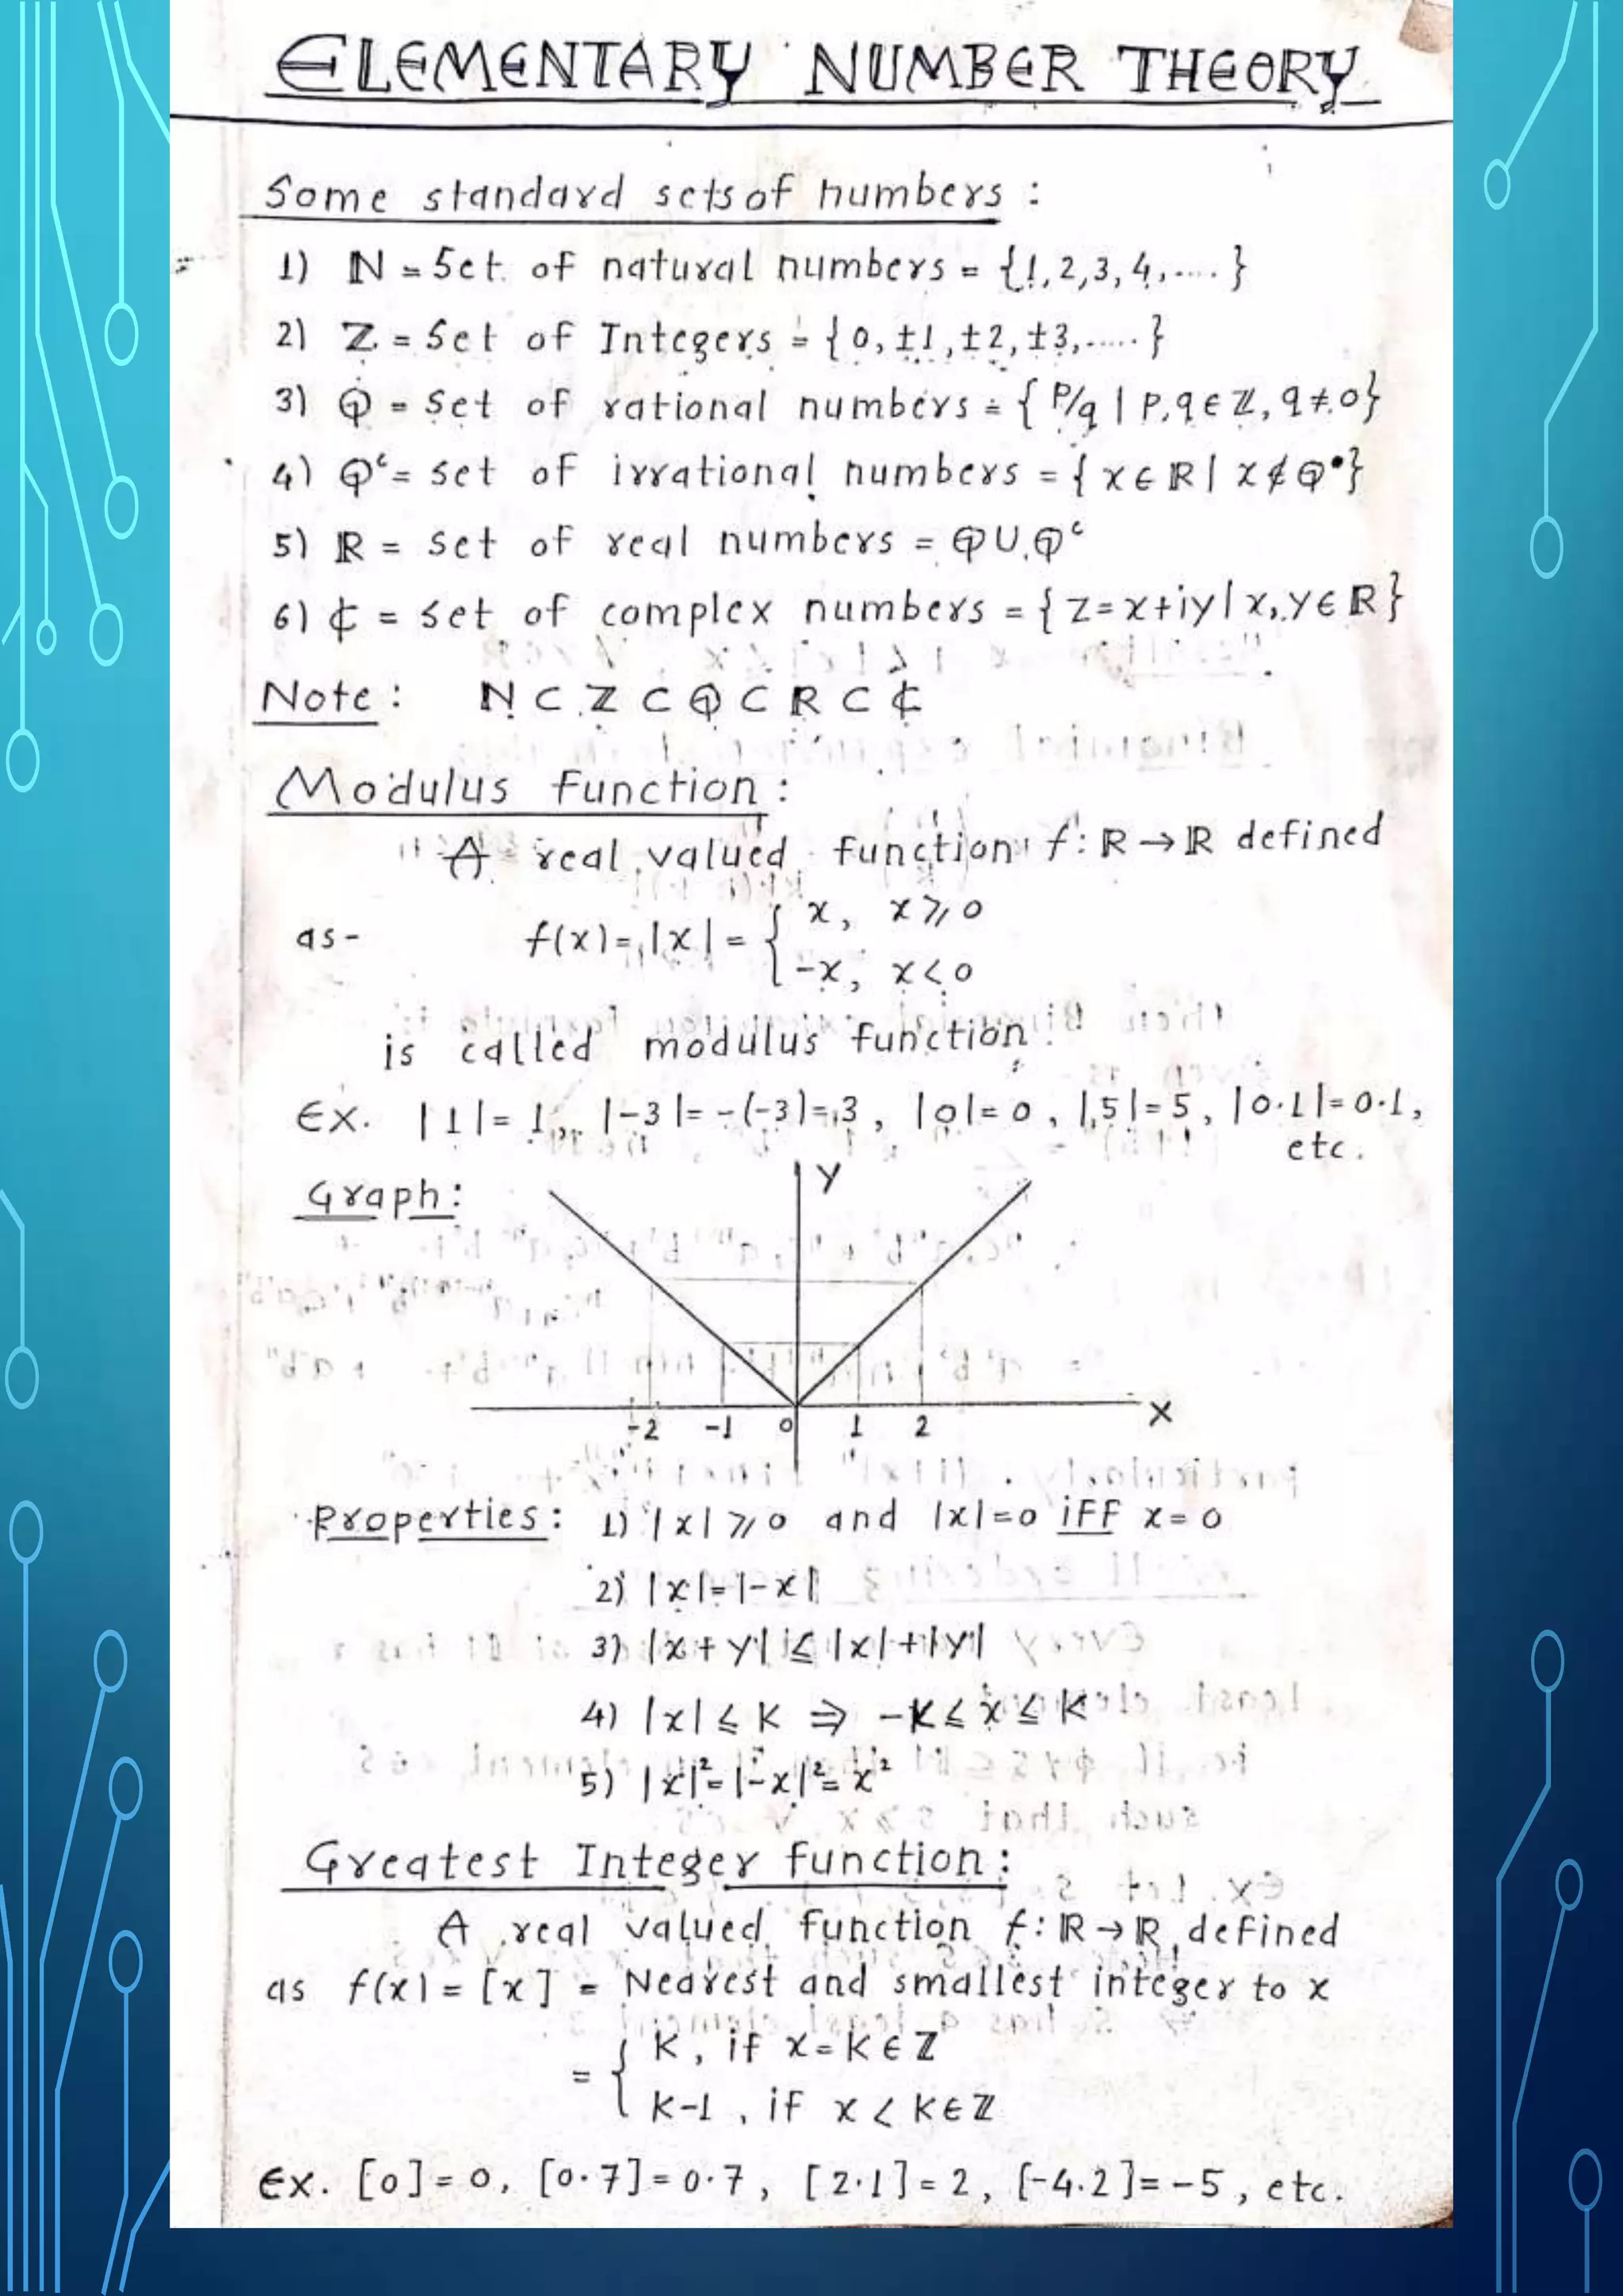 ELEMENTARY NUMBER THEORY
Some standard sets of numbers :
1) ℕ = Set of natural numbers = {1,2,3,4,....}
2) ℤ = Set of Integers = {0, ±1, ±2, ±3,.....}
3) ℚ = Set of rational numbers = {P/q | p,q ∈ ℤ, q ≠ 0}
4) ℚᶜ = set of irrational numbers = {x ∈ ℝ | x ∉ ℚ}
5) ℝ = set of real numbers = ℚ ∪ ℚᶜ
6) ℂ = set of complex numbers = {z = x+iy | x, y ∈ ℝ}
Note : ℕ ⊂ ℤ ⊂ ℚ ⊂ ℝ ⊂ ℂ
Modulus Function :
A real valued function f: ℝ → ℝ defined
as - f(x) = |x| = { x, x ⩾ 0
-x, x < 0
is called modulus function.
Ex. |1| = 1, |-3| = -(-3) = 3, |0| = 0, |5| = 5, |0.1| = 0.1,
etc.
Graph :
Y
X
-2 -1 0 1 2
Properties : 1) |x| ⩾ 0 and |x| = 0 iff x = 0
2) |x| = |-x|
3) |x + y| ≤ |x| + |y|
4) |x| ≤ K ⇒ -K ≤ x ≤ K
5) |x|² = |-x|² = x²
Greatest Integer function :
A real valued function f: ℝ → ℝ, defined
as f(x) = [x] = Nearest and smallest integer to x
= { K, if x = K ∈ ℤ
K-1, if x < K ∈ ℤ
Ex. [0] = 0, [0.7] = 0.7, [2.1] = 2, [-4.2] = -5, etc.